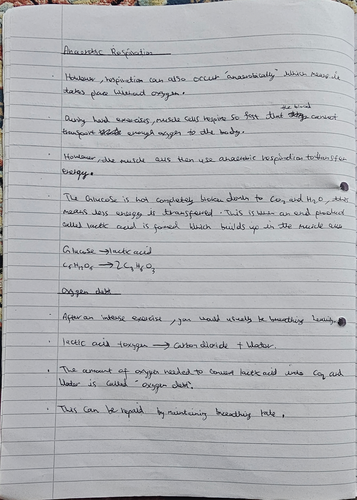 Anaerobic Respiration
However, respiration can also occur "anaerobically" which means it
takes place without oxygen.
During hard exercises, muscle cells respire so fast that the blood cannot
transport enough oxygen to the body.
However, the muscle cells then use anaerobic respiration to transfer
energy.
The Glucose is not completely broken down to CO2 and H2O, this
means less energy is transferred. This is when an end product
called lactic acid is formed which builds up in the muscle cells
Glucose → lactic acid
C6H12O6 → 2C3H6O3
Oxygen debt
After an intense exercise, you would usually be breathing heavily
lactic acid + oxygen → Carbon dioxide + Water.
The amount of oxygen needed to convert lactic acid into CO2 and
Water is called "oxygen debt".
This can be repaid by maintaining breathing rate.